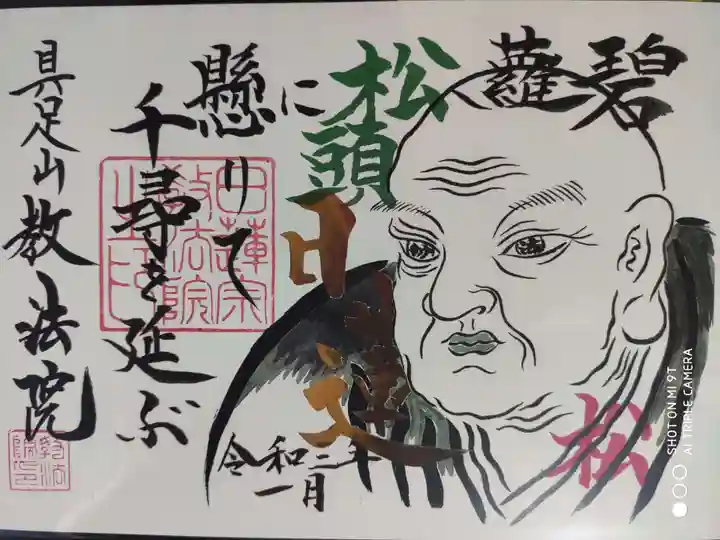 碧蘿
松頭に
懸りて
千尋を延ぶ
日蓮
松
令和三年
一月
具足山教法院
日蓮宗
教法院
之印
教法
院印
SHOT ON MI 9T
AI TRIPLE CAMERA